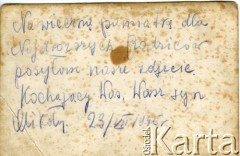 Na wieczną pamiątkę dla
Najdroższych Rodziców
posyłam nasze zdjęcie
Kochający Was, Wasz syn
23/VI
Ośrodek Karta